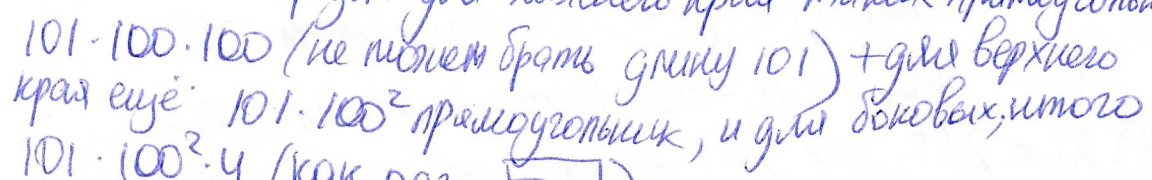 для нижнего края таких прямоугольн
101·100·100 (не может брать длину 101) + для верхнего
края ещё 101·100² прямоугольник, и для боковых, итого
101·100²·4 (как раз